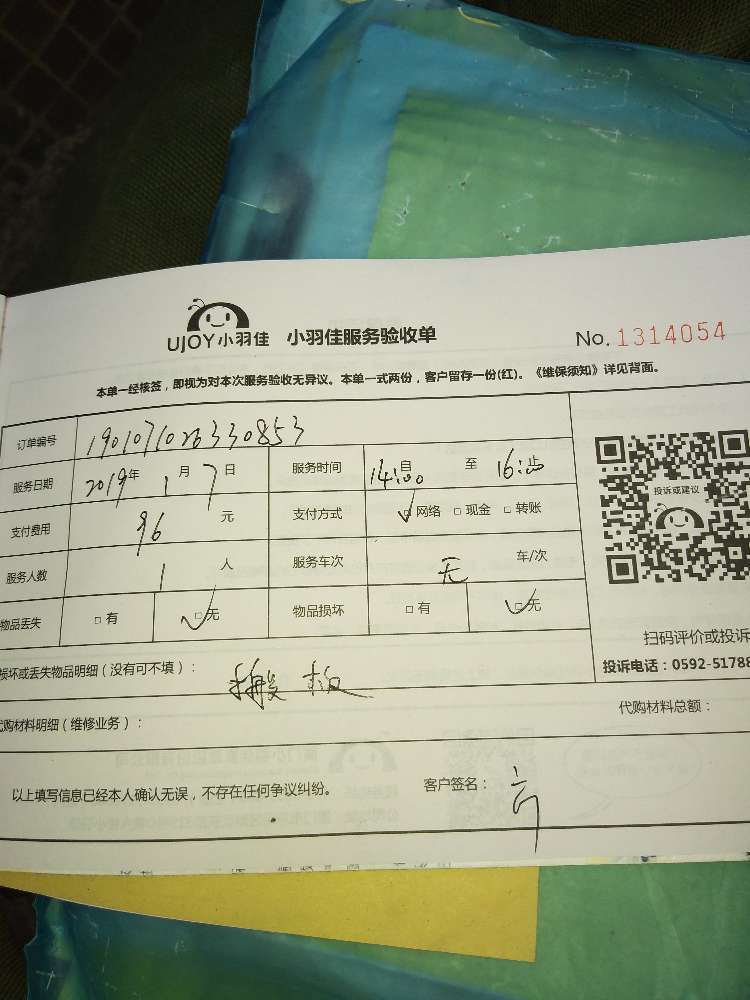 UJOY小羽佳 小羽佳服务验收单 No. 1314054
本单一经核签，即视为对本次服务验收无异议。本单一式两份，客户留存一份(红)。《维保须知》详见背面。
订单编号 1901071026330853
服务日期 2019年 1月 7日 服务时间 14:00 自 至 16:00 止
投诉或建议
支付费用 96 元 支付方式 □网络 □现金 □转账
服务人数 1 人 服务车次 无 车/次
物品丢失 □有 □无 物品损坏 □有 □无
扫码评价或投诉
损坏或丢失物品明细（没有可不填）：
投诉电话：0592-51788
代购材料明细（维修业务）： 代购材料总额：
以上填写信息已经本人确认无误，不存在任何争议纠纷。 客户签名：